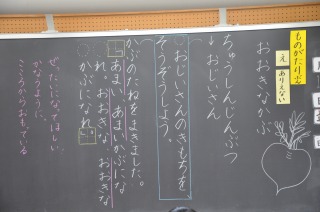 ものがたり文
え
ありえない
おおきなかぶ
ちゅうしんじんぶつ
↓おじいさん
おじいさんのきもちを
そうぞうしよう。
かぶのたねをまきました。
あまい あまいかぶにな
れ。おおきな おおきな
かぶになれ。
ぜったいになってほしい
かなうように、
こころでおもっている